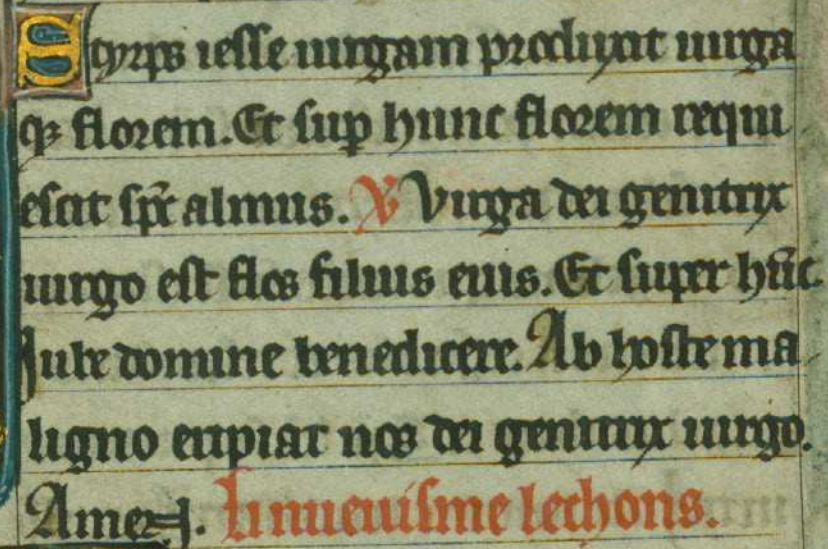 Styrps iesse uirgam produxit uirga
qꝫ florem. Et suꝑ hunc florem requi
escit sp̄c almus. ℣ Virga dei genitrix
uirgo est flos filius eius. Et super hūc.
Jube domine benedicere. Ab hoste ma
ligno eripiat nos dei genitrix uirgo.
Amen. Li nueuisme lechons.